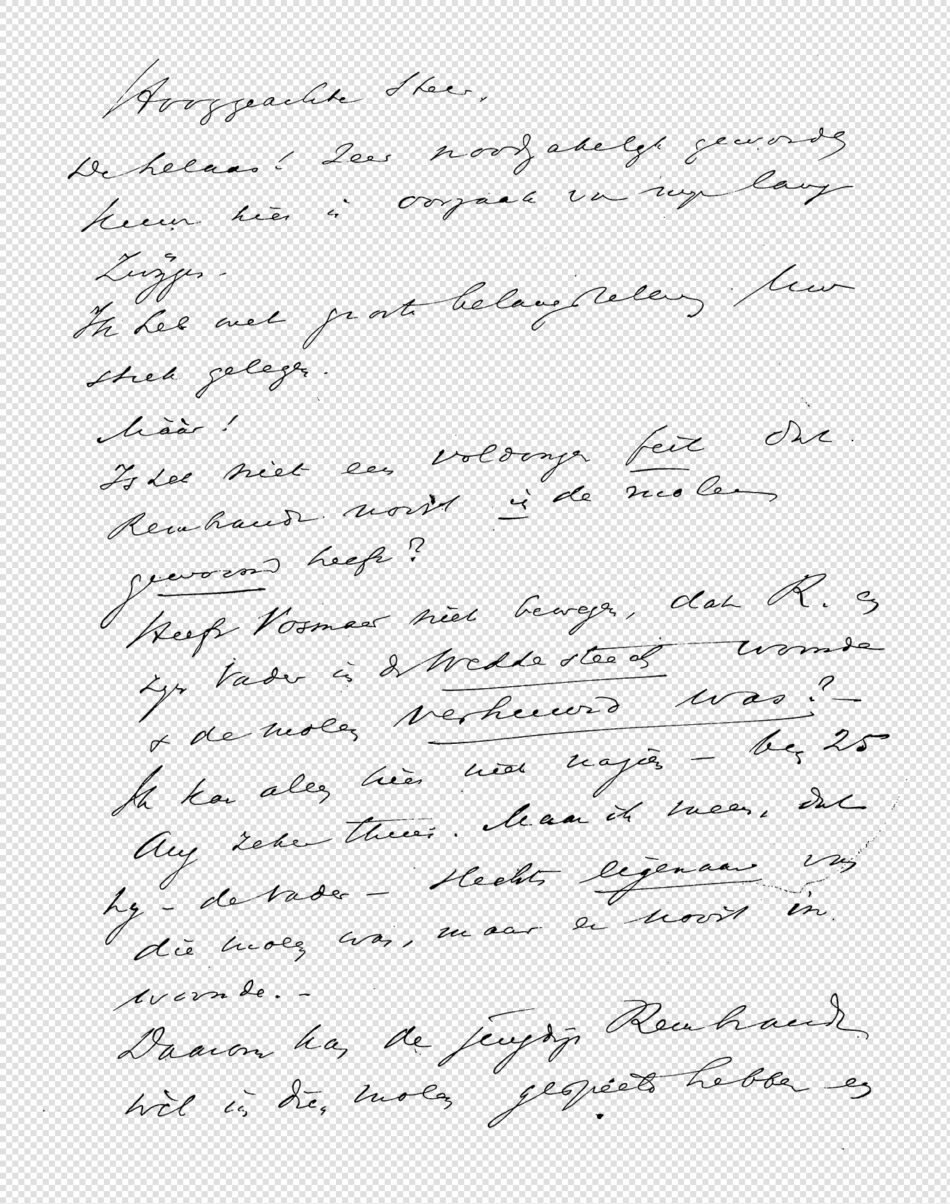 Hooggeachte Heer,
De helaas! Zeer noodzakelyk geworden
kuur hier is oorzaak van myn lang
Zwijgen.
Ik heb met groote belangstelling Uw
stuk gelezen.
Máár!
Is het niet een voldongen feit dat
Rembrandt nooit in de molen
gewoond heeft?
Heeft Vosmaer niet bewezen, dat R. en
zyn Vader in de Weddesteeg woonde
& de molen verhuurd was? –
Ik kan alles hier niet nazien – ben 25
Aug zeker thuis. Maar ik meen, dat
hy – de Vader – slechts eigenaar van
die molen was, maar er nooit in
woonde. –
Daarom kan de jeugdige Rembrandt
wel in dien molen gespeeld hebben en